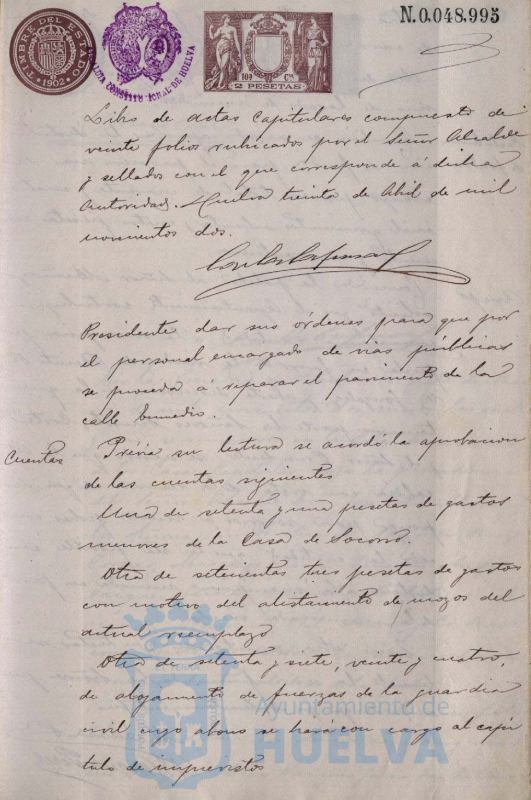 TIMBRE DEL ESTADO
1902
CONSTITUCIONAL DE HUELVA
100 Cs
2 PESETAS
N.0.048.995
Libro de actas Capitulares compuesto de
veinte folios rubricados por el Señor Alcalde
y sellados con el que corresponde á dicha
Autoridad. Huelva treinta de Abril de mil
novecientos dos.
Presidente dar sus órdenes para que por
el personal encargado de vias públicas
se proceda á reparar el pavimento de la
calle Enmedio.
Cuentas
Prévia su lectura se acordó la aprobacion
de las cuentas siguientes
Una de setenta y una pesetas de gastos
menores de la Casa de Socorro.
Otra de setecientas tres pesetas de gastos
con motivo del alistamiento de mozos del
actual reemplazo
Otra de setenta y siete, veinte y cuatro,
de alojamiento de fuerzas de la guardia
civil cuyo abono se hará con cargo al capí
tulo de imprevistos
Ayuntamiento de
HUELVA